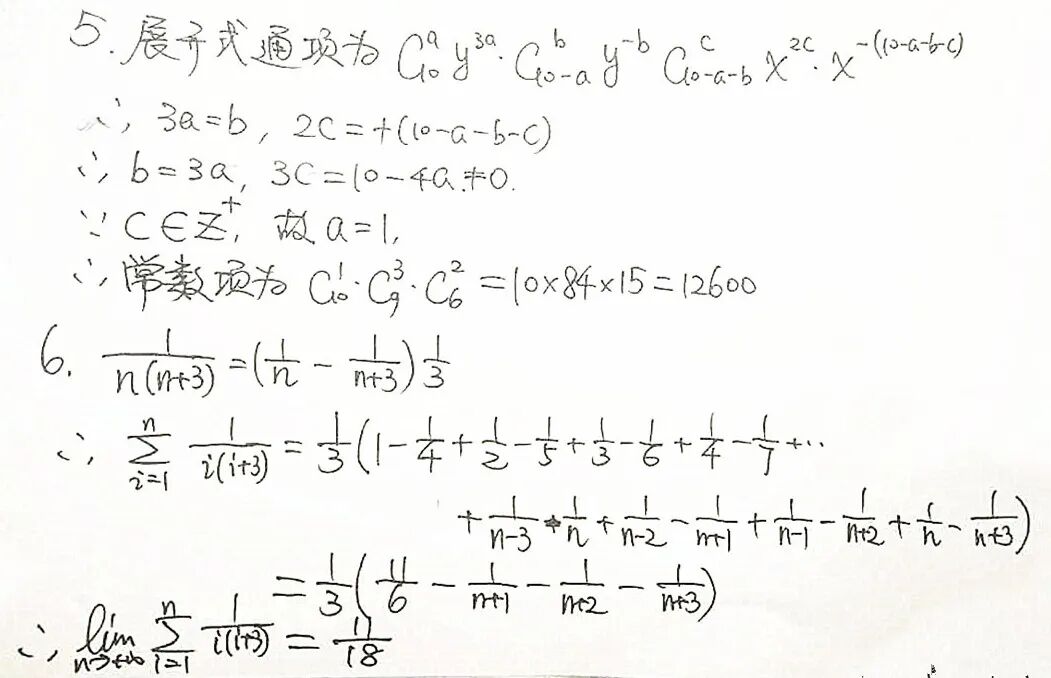 5. 展开式通项为 C₁₀ᵃ y³ᵃ · C₁₀₋ₐᵇ y⁻ᵇ C₁₀₋ₐ₋ᵦᶜ x²ᶜ · x^{-(10-a-b-c)}
∴ 3a=b, 2c=+(10-a-b-c)
∴ b=3a, 3c=10-4a≠0.
∵ C∈Z⁺, 故 a=1,
∴ 常数项为 C₁₀¹·C₉³·C₆² = 10×84×15 = 12600
6. 1/(n(n+3)) = (1/n - 1/(n+3)) 1/3
∴ ∑_{i=1}^{n} 1/(i(i+3)) = 1/3 (1 - 1/4 + 1/2 - 1/5 + 1/3 - 1/6 + 1/4 - 1/7 + ··
+ 1/(n-3) - 1/n + 1/(n-2) - 1/(n+1) + 1/(n-1) - 1/(n+2) + 1/n - 1/(n+3))
= 1/3 (11/6 - 1/(n+1) - 1/(n+2) - 1/(n+3))
∴ lim_{n→+∞} ∑_{i=1}^{n} 1/(i(i+3)) = 11/18